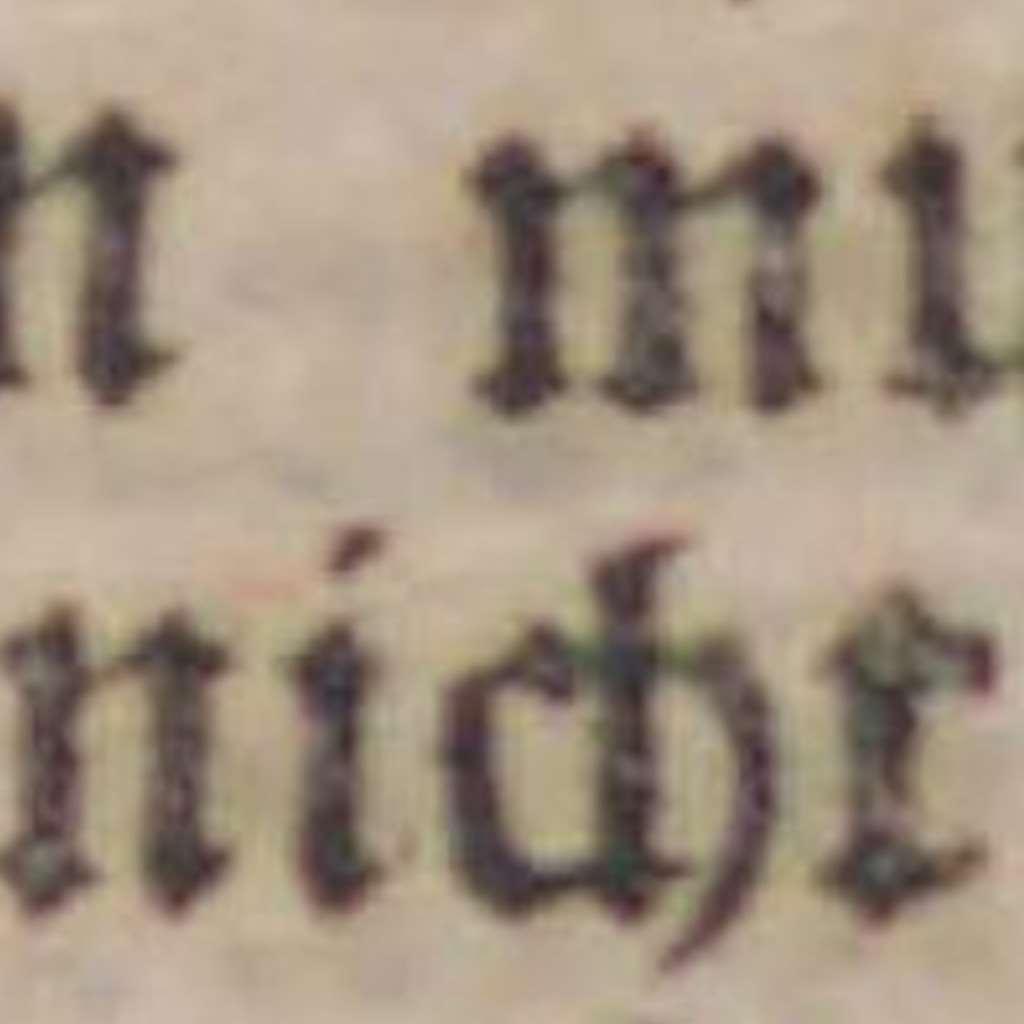 n mu
nichr